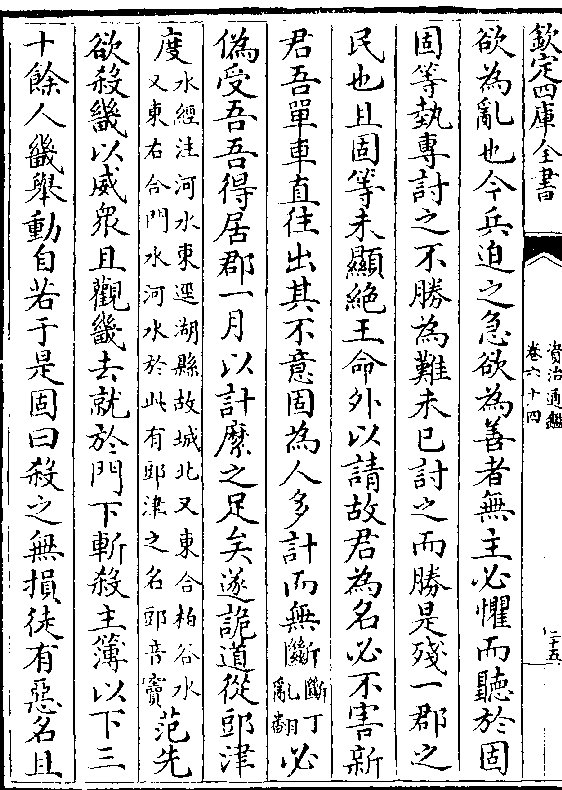 欽定四庫全書
資治通鑑
卷六十四
二十五
欲為亂也今兵迫之急欲為善者無主必懼而聽於固
固等埶專討之不勝為難未已討之而勝是殘一郡之
民也且固等未顯絶王命外以請故君為名必不害新
君吾單車直往出其不意固為人多計而無斷斷丁亂翻必
偽受吾吾得居郡一月以計縻之足矣遂詭道從郖津
度水經注河水東逕湖縣故城北又東合柏谷水又東右合門水河水於此有郖津之名郖音竇范先
欲殺畿以威衆且觀畿去就於門下斬殺主簿以下三
十餘人畿舉動自若于是固曰殺之無損徒有惡名且